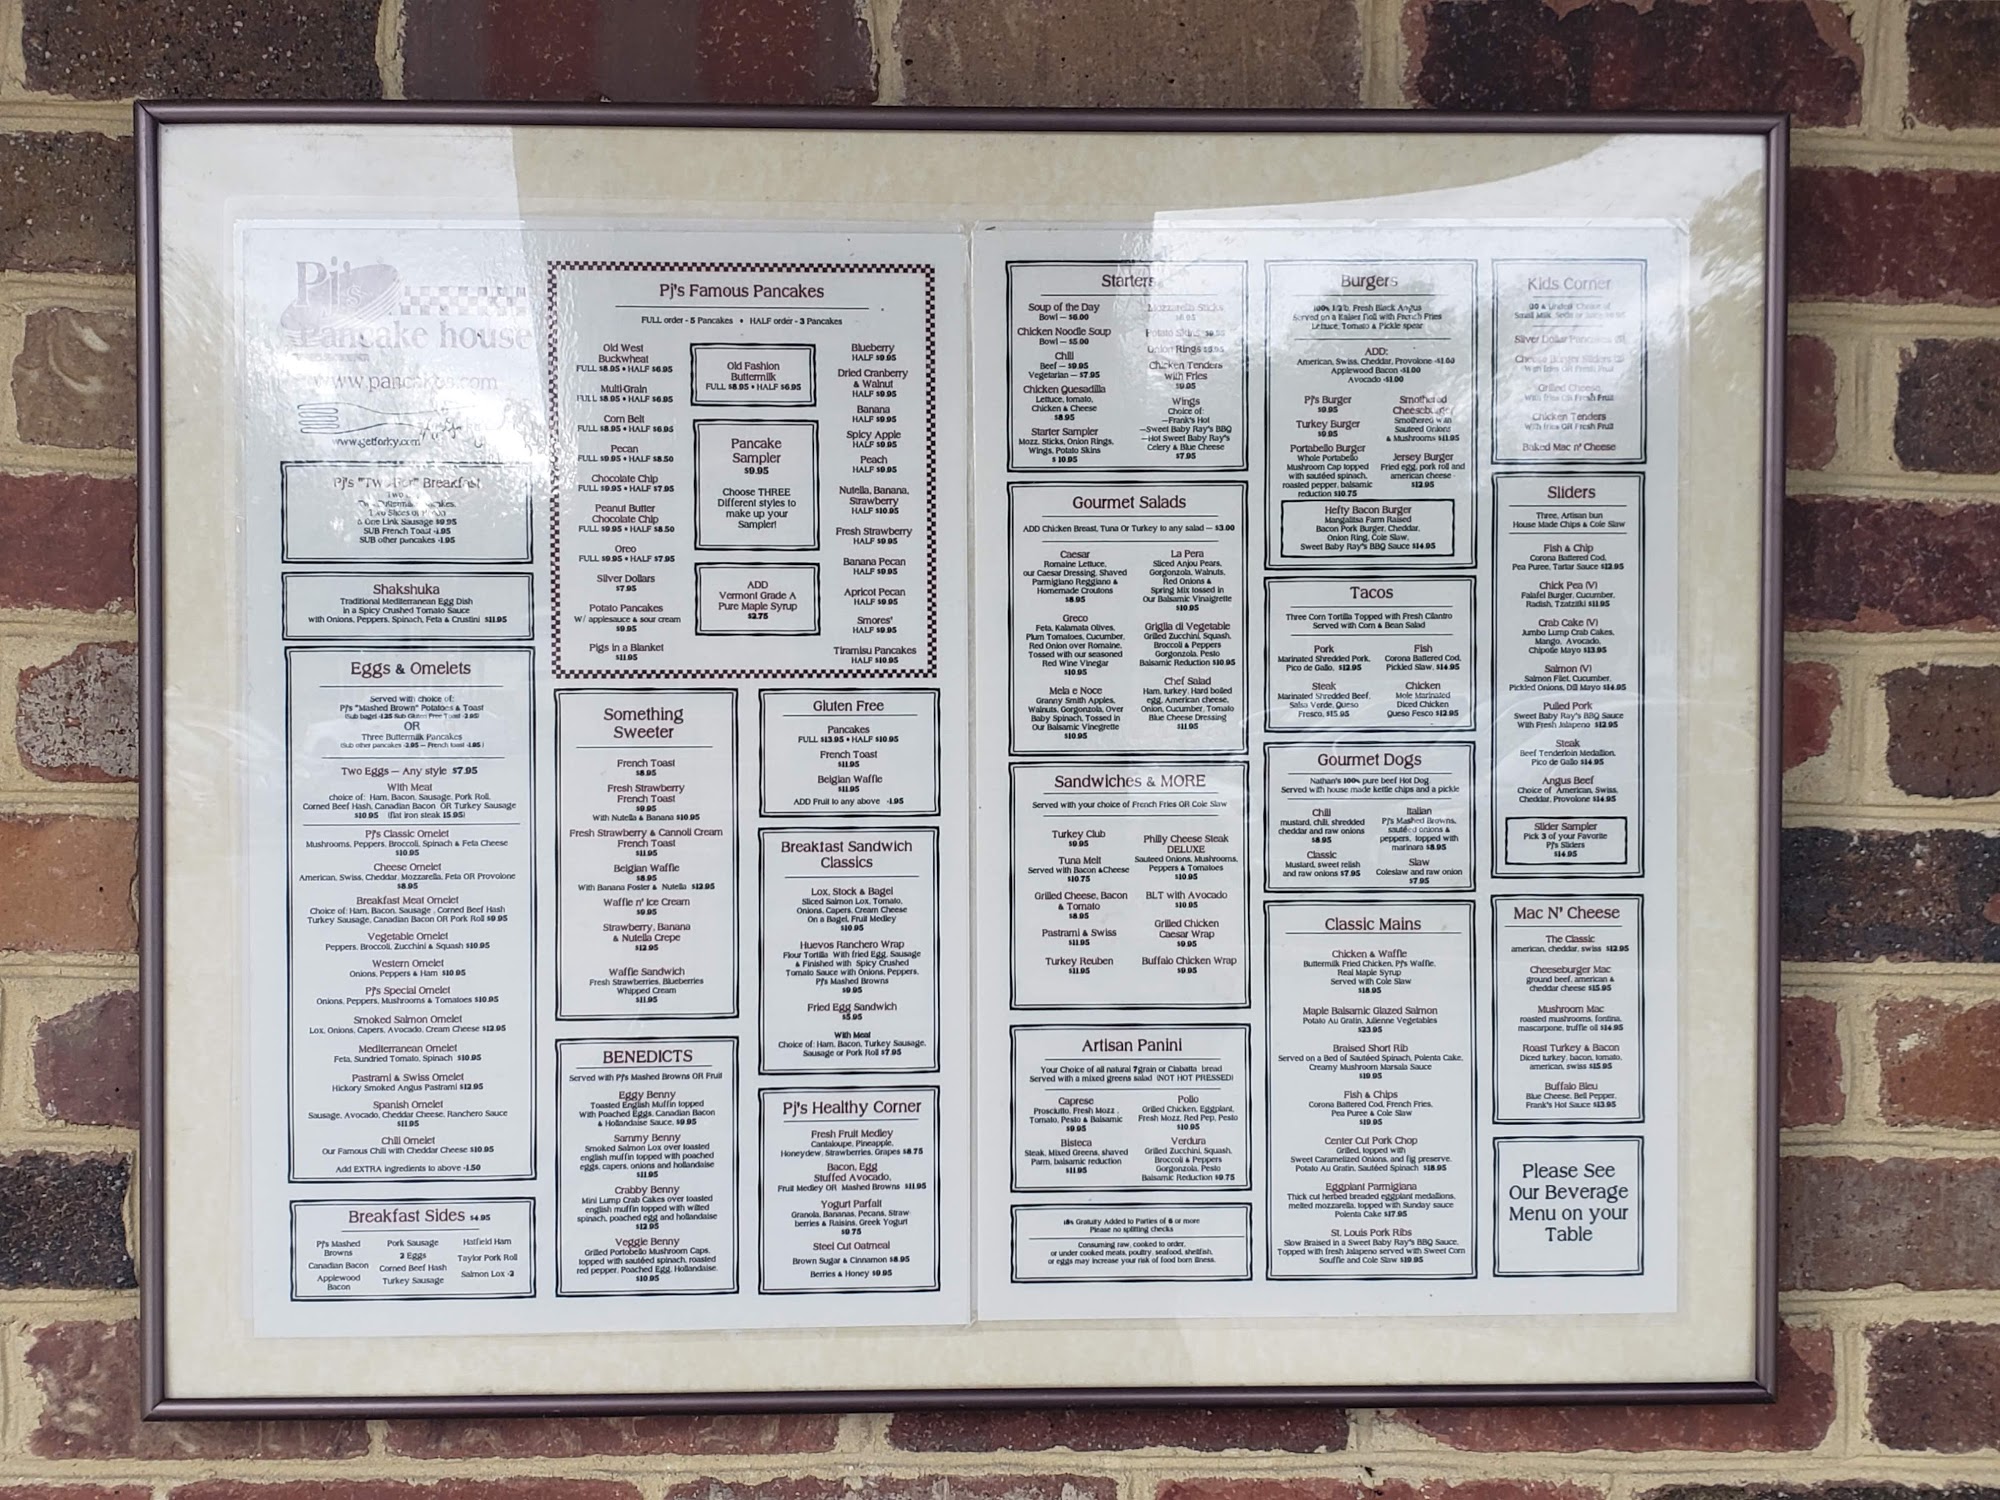 Pj's
Pancake house
www.pancakes.com
www.getforky.com
Pj's "Two-For" Breakfast
& One Link Sausage $9.95
SUB French Toast -1.95
SUB other pancakes -1.95
Shakshuka
Traditional Mediterranean Egg Dish
in a Spicy Crushed Tomato Sauce
with Onions, Peppers, Spinach, Feta & Crustini $11.95
Eggs & Omelets
Served with choice of:
Pj's "Mashed Brown" Potatoes & Toast
(Sub bagel -1.25 Sub Gluten Free Toast -2.95)
OR
Three Buttermilk Pancakes
(Sub other pancakes -2.95 — French toast -1.95)
Two Eggs — Any style $7.95
With Meat
choice of: Ham, Bacon, Sausage, Pork Roll,
Corned Beef Hash, Canadian Bacon OR Turkey Sausage
$10.95 (flat iron steak 15.95)
Pj's Classic Omelet
Mushrooms, Peppers, Broccoli, Spinach & Feta Cheese
$10.95
Cheese Omelet
American, Swiss, Cheddar, Mozzarella, Feta OR Provolone
$8.95
Breakfast Meat Omelet
Choice of: Ham, Bacon, Sausage, Corned Beef Hash
Turkey Sausage, Canadian Bacon OR Pork Roll $9.95
Vegetable Omelet
Peppers, Broccoli, Zucchini & Squash $10.95
Western Omelet
Onions, Peppers & Ham $10.95
Pj's Special Omelet
Onions, Peppers, Mushrooms & Tomatoes $10.95
Smoked Salmon Omelet
Lox, Onions, Capers, Avocado, Cream Cheese $12.95
Mediterranean Omelet
Feta, Sundried Tomato, Spinach $10.95
Pastrami & Swiss Omelet
Hickory Smoked Angus Pastrami $12.95
Spanish Omelet
Sausage, Avocado, Cheddar Cheese, Ranchero Sauce
$11.95
Chili Omelet
Our Famous Chili with Cheddar Cheese $10.95
Add EXTRA ingredients to above -1.50
Breakfast Sides $4.95
Pj's Mashed
Browns
Canadian Bacon
Applewood
Bacon
Pork Sausage
2 Eggs
Corned Beef Hash
Turkey Sausage
Hatfield Ham
Taylor Pork Roll
Salmon Lox -2
Pj's Famous Pancakes
FULL order - 5 Pancakes • HALF order - 3 Pancakes
Old West
Buckwheat
FULL $8.95 • HALF $6.95
Multi-Grain
FULL $8.95 • HALF $6.95
Corn Belt
FULL $8.95 • HALF $6.95
Pecan
FULL $9.95 • HALF $8.50
Chocolate Chip
FULL $9.95 • HALF $7.95
Peanut Butter
Chocolate Chip
FULL $9.95 • HALF $8.50
Oreo
FULL $9.95 • HALF $7.95
Silver Dollars
$7.95
Potato Pancakes
W/ applesauce & sour cream
$9.95
Pigs in a Blanket
$11.95
Old Fashion
Buttermilk
FULL $8.95 • HALF $6.95
Pancake
Sampler
$9.95
Choose THREE
Different styles to
make up your
Sampler!
ADD
Vermont Grade A
Pure Maple Syrup
$2.75
Blueberry
HALF $9.95
Dried Cranberry
& Walnut
HALF $9.95
Banana
HALF $9.95
Spicy Apple
HALF $9.95
Peach
HALF $9.95
Nutella, Banana,
Strawberry
HALF $10.95
Fresh Strawberry
HALF $9.95
Banana Pecan
HALF $9.95
Apricot Pecan
HALF $9.95
Smores'
HALF $9.95
Tiramisu Pancakes
HALF $10.95
Something
Sweeter
French Toast
$8.95
Fresh Strawberry
French Toast
$9.95
With Nutella & Banana $10.95
Fresh Strawberry & Cannoli Cream
French Toast
$11.95
Belgian Waffle
$8.95
With Banana Foster & Nutella $12.95
Waffle n' Ice Cream
$9.95
Strawberry, Banana
& Nutella Crepe
$12.95
Waffle Sandwich
Fresh Strawberries, Blueberries
Whipped Cream
$11.95
BENEDICTS
Served with Pj's Mashed Browns OR Fruit
Eggy Benny
Toasted English Muffin topped
With Poached Eggs, Canadian Bacon
& Hollandaise Sauce, $9.95
Sammy Benny
Smoked Salmon Lox over toasted
english muffin topped with poached
eggs, capers, onions and hollandaise
$11.95
Crabby Benny
Mini Lump Crab Cakes over toasted
english muffin topped with wilted
spinach, poached egg and hollandaise
$12.95
Veggie Benny
Grilled Portobello Mushroom Caps,
topped with sautéed spinach, roasted
red pepper, Poached Egg, Hollandaise.
$10.95
Gluten Free
Pancakes
FULL $13.95 • HALF $10.95
French Toast
$11.95
Belgian Waffle
$11.95
ADD Fruit to any above -1.95
Breakfast Sandwich
Classics
Lox, Stock & Bagel
Sliced Salmon Lox, Tomato,
Onions, Capers, Cream Cheese
On a Bagel, Fruit Medley
$10.95
Huevos Ranchero Wrap
Flour Tortilla With fried Egg, Sausage
& Finished with Spicy Crushed
Tomato Sauce with Onions, Peppers,
Pj's Mashed Browns
$9.95
Fried Egg Sandwich
$5.95
With Meat
Choice of: Ham, Bacon, Turkey Sausage,
Sausage or Pork Roll $7.95
Pj's Healthy Corner
Fresh Fruit Medley
Cantaloupe, Pineapple,
Honeydew, Strawberries, Grapes $8.75
Bacon, Egg
Stuffed Avocado,
Fruit Medley OR Mashed Browns $11.95
Yogurt Parfait
Granola, Bananas, Pecans, Straw-
berries & Raisins, Greek Yogurt
$9.75
Steel Cut Oatmeal
Brown Sugar & Cinnamon $8.95
Berries & Honey $9.95
Starters
Soup of the Day
Bowl — $6.00
Chicken Noodle Soup
Bowl — $5.00
Chili
Beef — $9.95
Vegetarian — $7.95
Chicken Quesadilla
Lettuce, tomato,
Chicken & Cheese
$8.95
Starter Sampler
Mozz. Sticks, Onion Rings,
Wings, Potato Skins
$10.95
Mozzarella Sticks
Potato Skins
Onion Rings $5.95
Chicken Tenders
with Fries
$9.95
Wings
Choice of:
—Frank's Hot
—Sweet Baby Ray's BBQ
—Hot Sweet Baby Ray's
Celery & Blue Cheese
$7.95
Gourmet Salads
ADD Chicken Breast, Tuna Or Turkey to any salad — $3.00
Caesar
Romaine Lettuce,
our Caesar Dressing, Shaved
Parmigiano Reggiano &
Homemade Croutons
$8.95
Greco
Feta, Kalamata Olives,
Plum Tomatoes, Cucumber,
Red Onion over Romaine,
Tossed with our seasoned
Red Wine Vinegar
$10.95
Mela e Noce
Granny Smith Apples,
Walnuts, Gorgonzola, Over
Baby Spinach, Tossed in
Our Balsamic Vinegrette
$10.95
La Pera
Sliced Anjou Pears,
Gorgonzola, Walnuts,
Red Onions &
Spring Mix tossed in
Our Balsamic Vinaigrette
$10.95
Griglia di Vegetable
Grilled Zucchini, Squash,
Broccoli & Peppers
Gorgonzola, Pesto
Balsamic Reduction $10.95
Chef Salad
Ham, turkey, Hard boiled
egg, American cheese,
Onion, Cucumber, Tomato
Blue Cheese Dressing
$11.95
Sandwiches & MORE
Served with your choice of French Fries OR Cole Slaw
Turkey Club
$9.95
Tuna Melt
Served with Bacon &Cheese
$10.75
Grilled Cheese, Bacon
& Tomato
$8.95
Pastrami & Swiss
$11.95
Turkey Reuben
$11.95
Philly Cheese Steak
DELUXE
Sauteed Onions, Mushrooms,
Peppers & Tomatoes
$10.95
BLT with Avocado
$10.95
Grilled Chicken
Caesar Wrap
$9.95
Buffalo Chicken Wrap
$9.95
Artisan Panini
Your Choice of all natural 7grain or Ciabatta bread
Served with a mixed greens salad (NOT HOT PRESSED)
Caprese
Prosciutto, Fresh Mozz.,
Tomato, Pesto & Balsamic
$9.95
Bisteca
Steak, Mixed Greens, shaved
Parm, balsamic reduction
$11.95
Pollo
Grilled Chicken, Eggplant,
Fresh Mozz, Red Pep, Pesto
$10.95
Verdura
Grilled Zucchini, Squash,
Broccoli & Peppers
Gorgonzola, Pesto
Balsamic Reduction $9.75
18% Gratuity Added to Parties of 6 or more
Please no splitting checks
Consuming raw, cooked to order,
or under cooked meats, poultry, seafood, shellfish,
or eggs may increase your risk of food born illness.
Burgers
100% 1/2 lb. Fresh Black Angus
Served on a Kaiser Roll with French Fries
Lettuce, Tomato & Pickle spear
ADD:
American, Swiss, Cheddar, Provolone -$1.00
Applewood Bacon -$1.00
Avocado -$1.00
Pj's Burger
$9.95
Turkey Burger
$9.95
Portabello Burger
Whole Portabello
Mushroom Cap topped
with sautéed spinach,
roasted pepper, balsamic
reduction $10.75
Smothered
Cheeseburger
Smothered with
Sauteed Onions
& Mushrooms $11.95
Jersey Burger
Fried egg, pork roll and
american cheese
$12.95
Hefty Bacon Burger
Mangalitsa Farm Raised
Bacon Pork Burger, Cheddar,
Onion Ring, Cole Slaw,
Sweet Baby Ray's BBQ Sauce $14.95
Tacos
Three Corn Tortilla Topped with Fresh Cilantro
Served with Corn & Bean Salad
Pork
Marinated Shredded Pork,
Pico de Gallo, $12.95
Steak
Marinated Shredded Beef,
Salsa Verde, Queso
Fresco, $15.95
Fish
Corona Battered Cod,
Pickled Slaw, $14.95
Chicken
Mole Marinated
Diced Chicken
Queso Fesco $12.95
Gourmet Dogs
Nathan's 100% pure beef Hot Dog.
Served with house made kettle chips and a pickle
Chili
mustard, chili, shredded
cheddar and raw onions
$8.95
Classic
Mustard, sweet relish
and raw onions $7.95
Italian
Pj's Mashed Browns,
sautéed onions &
peppers, topped with
marinara $8.95
Slaw
Coleslaw and raw onion
$7.95
Classic Mains
Chicken & Waffle
Buttermilk Fried Chicken, Pj's Waffle,
Real Maple Syrup
Served with Cole Slaw
$18.95
Maple Balsamic Glazed Salmon
Potato Au Gratin, Julienne Vegetables
$23.95
Braised Short Rib
Served on a Bed of Sautéed Spinach, Polenta Cake,
Creamy Mushroom Marsala Sauce
$19.95
Fish & Chips
Corona Battered Cod, French Fries,
Pea Puree & Cole Slaw
$19.95
Center Cut Pork Chop
Grilled, topped with
Sweet Caramelized Onions, and fig preserve.
Potato Au Gratin, Sautéed Spinach $18.95
Eggplant Parmigiana
Thick cut herbed breaded eggplant medallions,
melted mozzarella, topped with Sunday sauce
Polenta Cake $17.95
St. Louis Pork Ribs
Slow Braised in a Sweet Baby Ray's BBQ Sauce,
Topped with fresh Jalapeno served with Sweet Corn
Souffle and Cole Slaw $19.95
Kids Corner
Silver Dollar Pancakes
Cheese Burger Sliders
With fries OR Fresh Fruit
Grilled Cheese
With fries OR Fresh Fruit
Chicken Tenders
With fries OR Fresh Fruit
Baked Mac n' Cheese
Sliders
Three, Artisan bun
House Made Chips & Cole Slaw
Fish & Chip
Corona Battered Cod,
Pea Puree, Tartar Sauce $12.95
Chick Pea (V)
Falafel Burger, Cucumber,
Radish, Tzatziki $11.95
Crab Cake (V)
Jumbo Lump Crab Cakes,
Mango, Avocado,
Chipotle Mayo $13.95
Salmon (V)
Salmon Filet, Cucumber,
Pickled Onions, Dill Mayo $14.95
Pulled Pork
Sweet Baby Ray's BBQ Sauce
With Fresh Jalapeno $12.95
Steak
Beef Tenderloin Medallion,
Pico de Gallo $14.95
Angus Beef
Choice of American, Swiss,
Cheddar, Provolone $14.95
Slider Sampler
Pick 3 of your Favorite
Pj's Sliders
$14.95
Mac N' Cheese
The Classic
american, cheddar, swiss $12.95
Cheeseburger Mac
ground beef, american &
cheddar cheese $15.95
Mushroom Mac
roasted mushrooms, fontina,
mascarpone, truffle oil $14.95
Roast Turkey & Bacon
Diced turkey, bacon, tomato,
american, swiss $15.95
Buffalo Bleu
Blue Cheese, Bell Pepper,
Frank's Hot Sauce $13.95
Please See
Our Beverage
Menu on your
Table